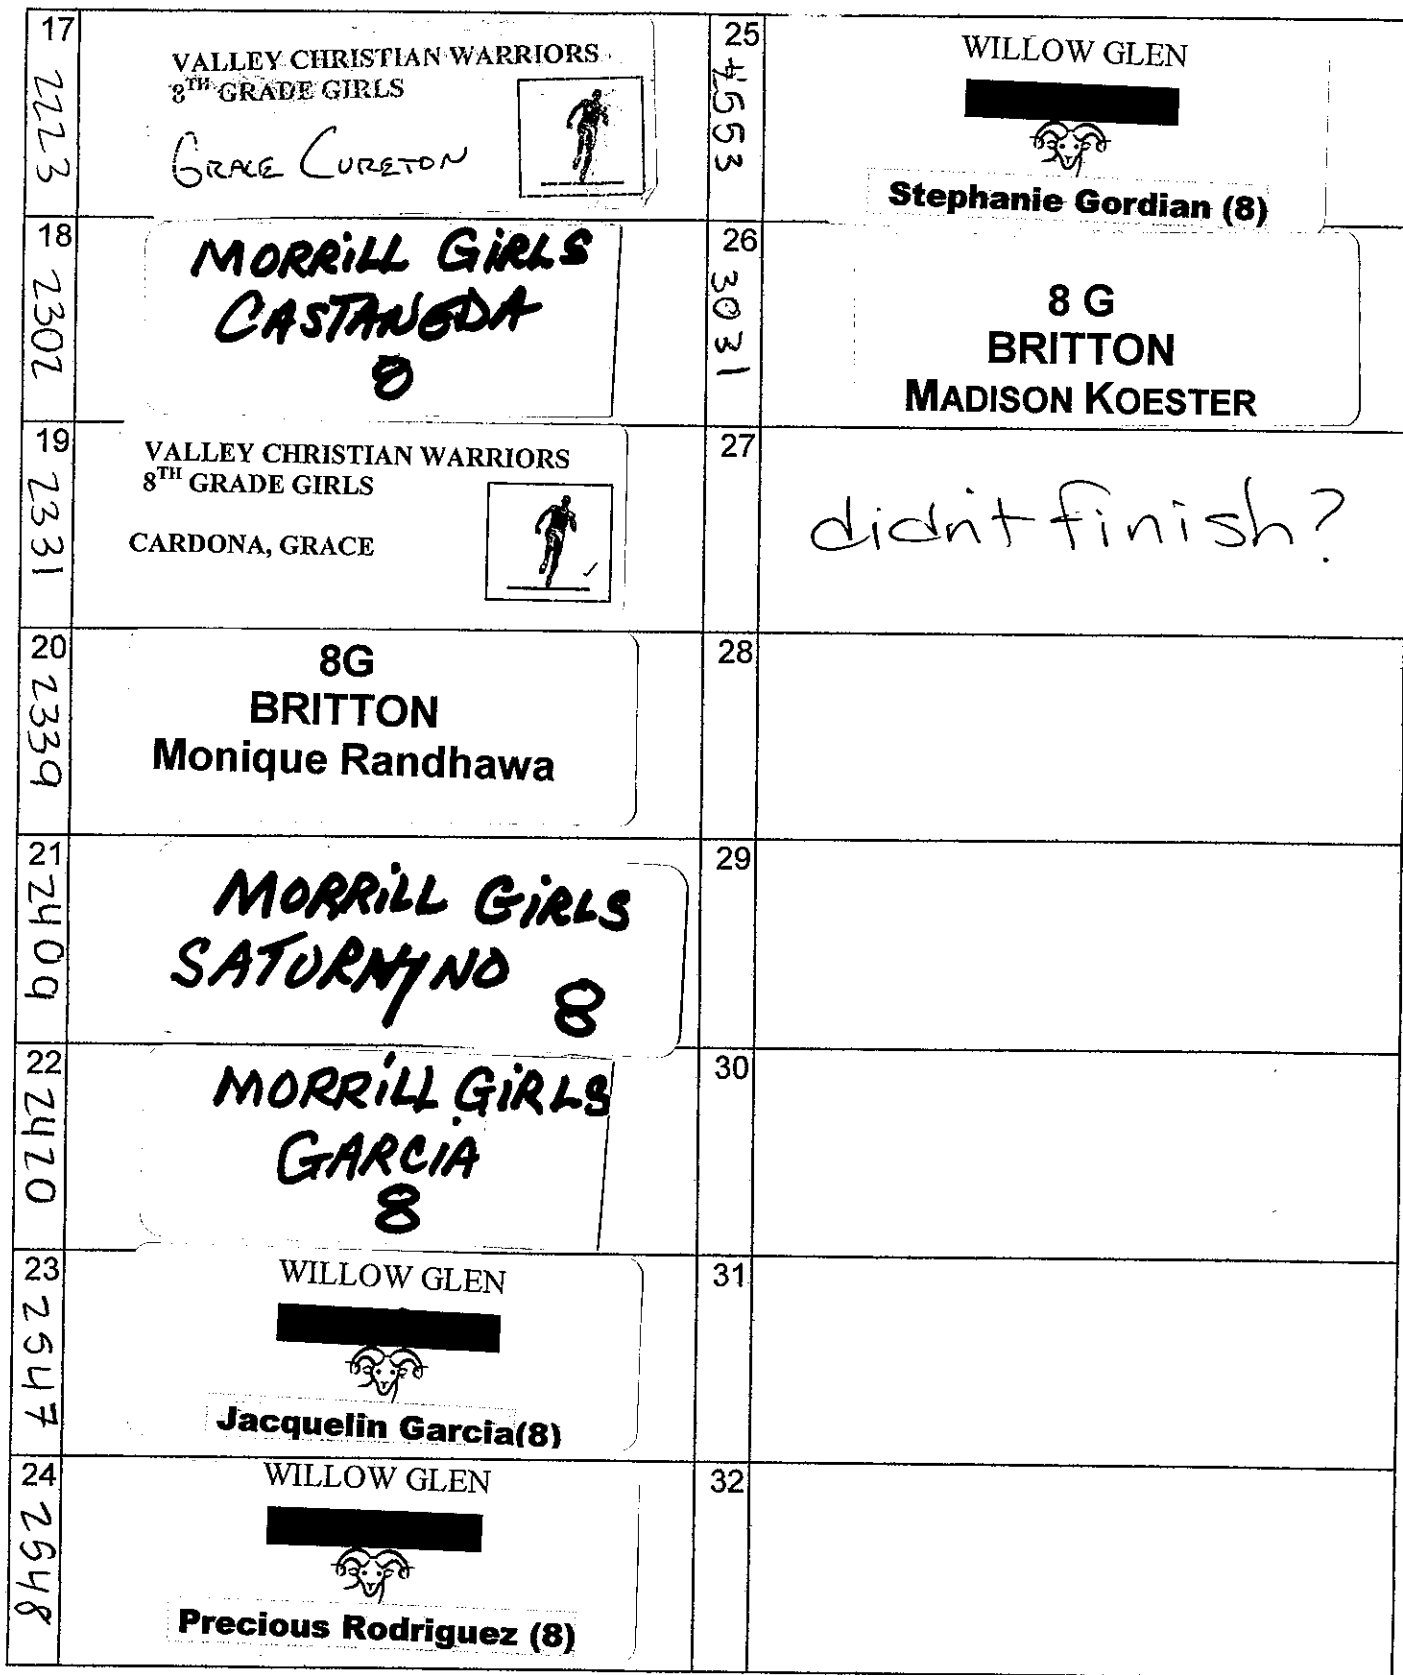 17
2223
VALLEY CHRISTIAN WARRIORS
8TH GRADE GIRLS
GRACE CURETON
18
2302
MORRILL GIRLS
CASTANEDA
8
19
2331
VALLEY CHRISTIAN WARRIORS
8TH GRADE GIRLS
CARDONA, GRACE
20
2339
8G
BRITTON
Monique Randhawa
21
2409
MORRILL GIRLS
SATURNYNO 8
22
2420
MORRILL GIRLS
GARCIA
8
23
2547
WILLOW GLEN
Jacquelin Garcia(8)
24
2548
WILLOW GLEN
Precious Rodriguez (8)
25
2553
WILLOW GLEN
Stephanie Gordian (8)
26
3031
8 G
BRITTON
MADISON KOESTER
27
didn't finish?
28
29
30
31
32